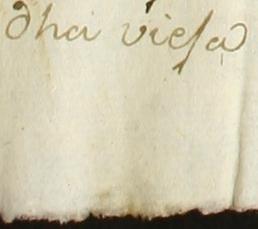 dha viesa